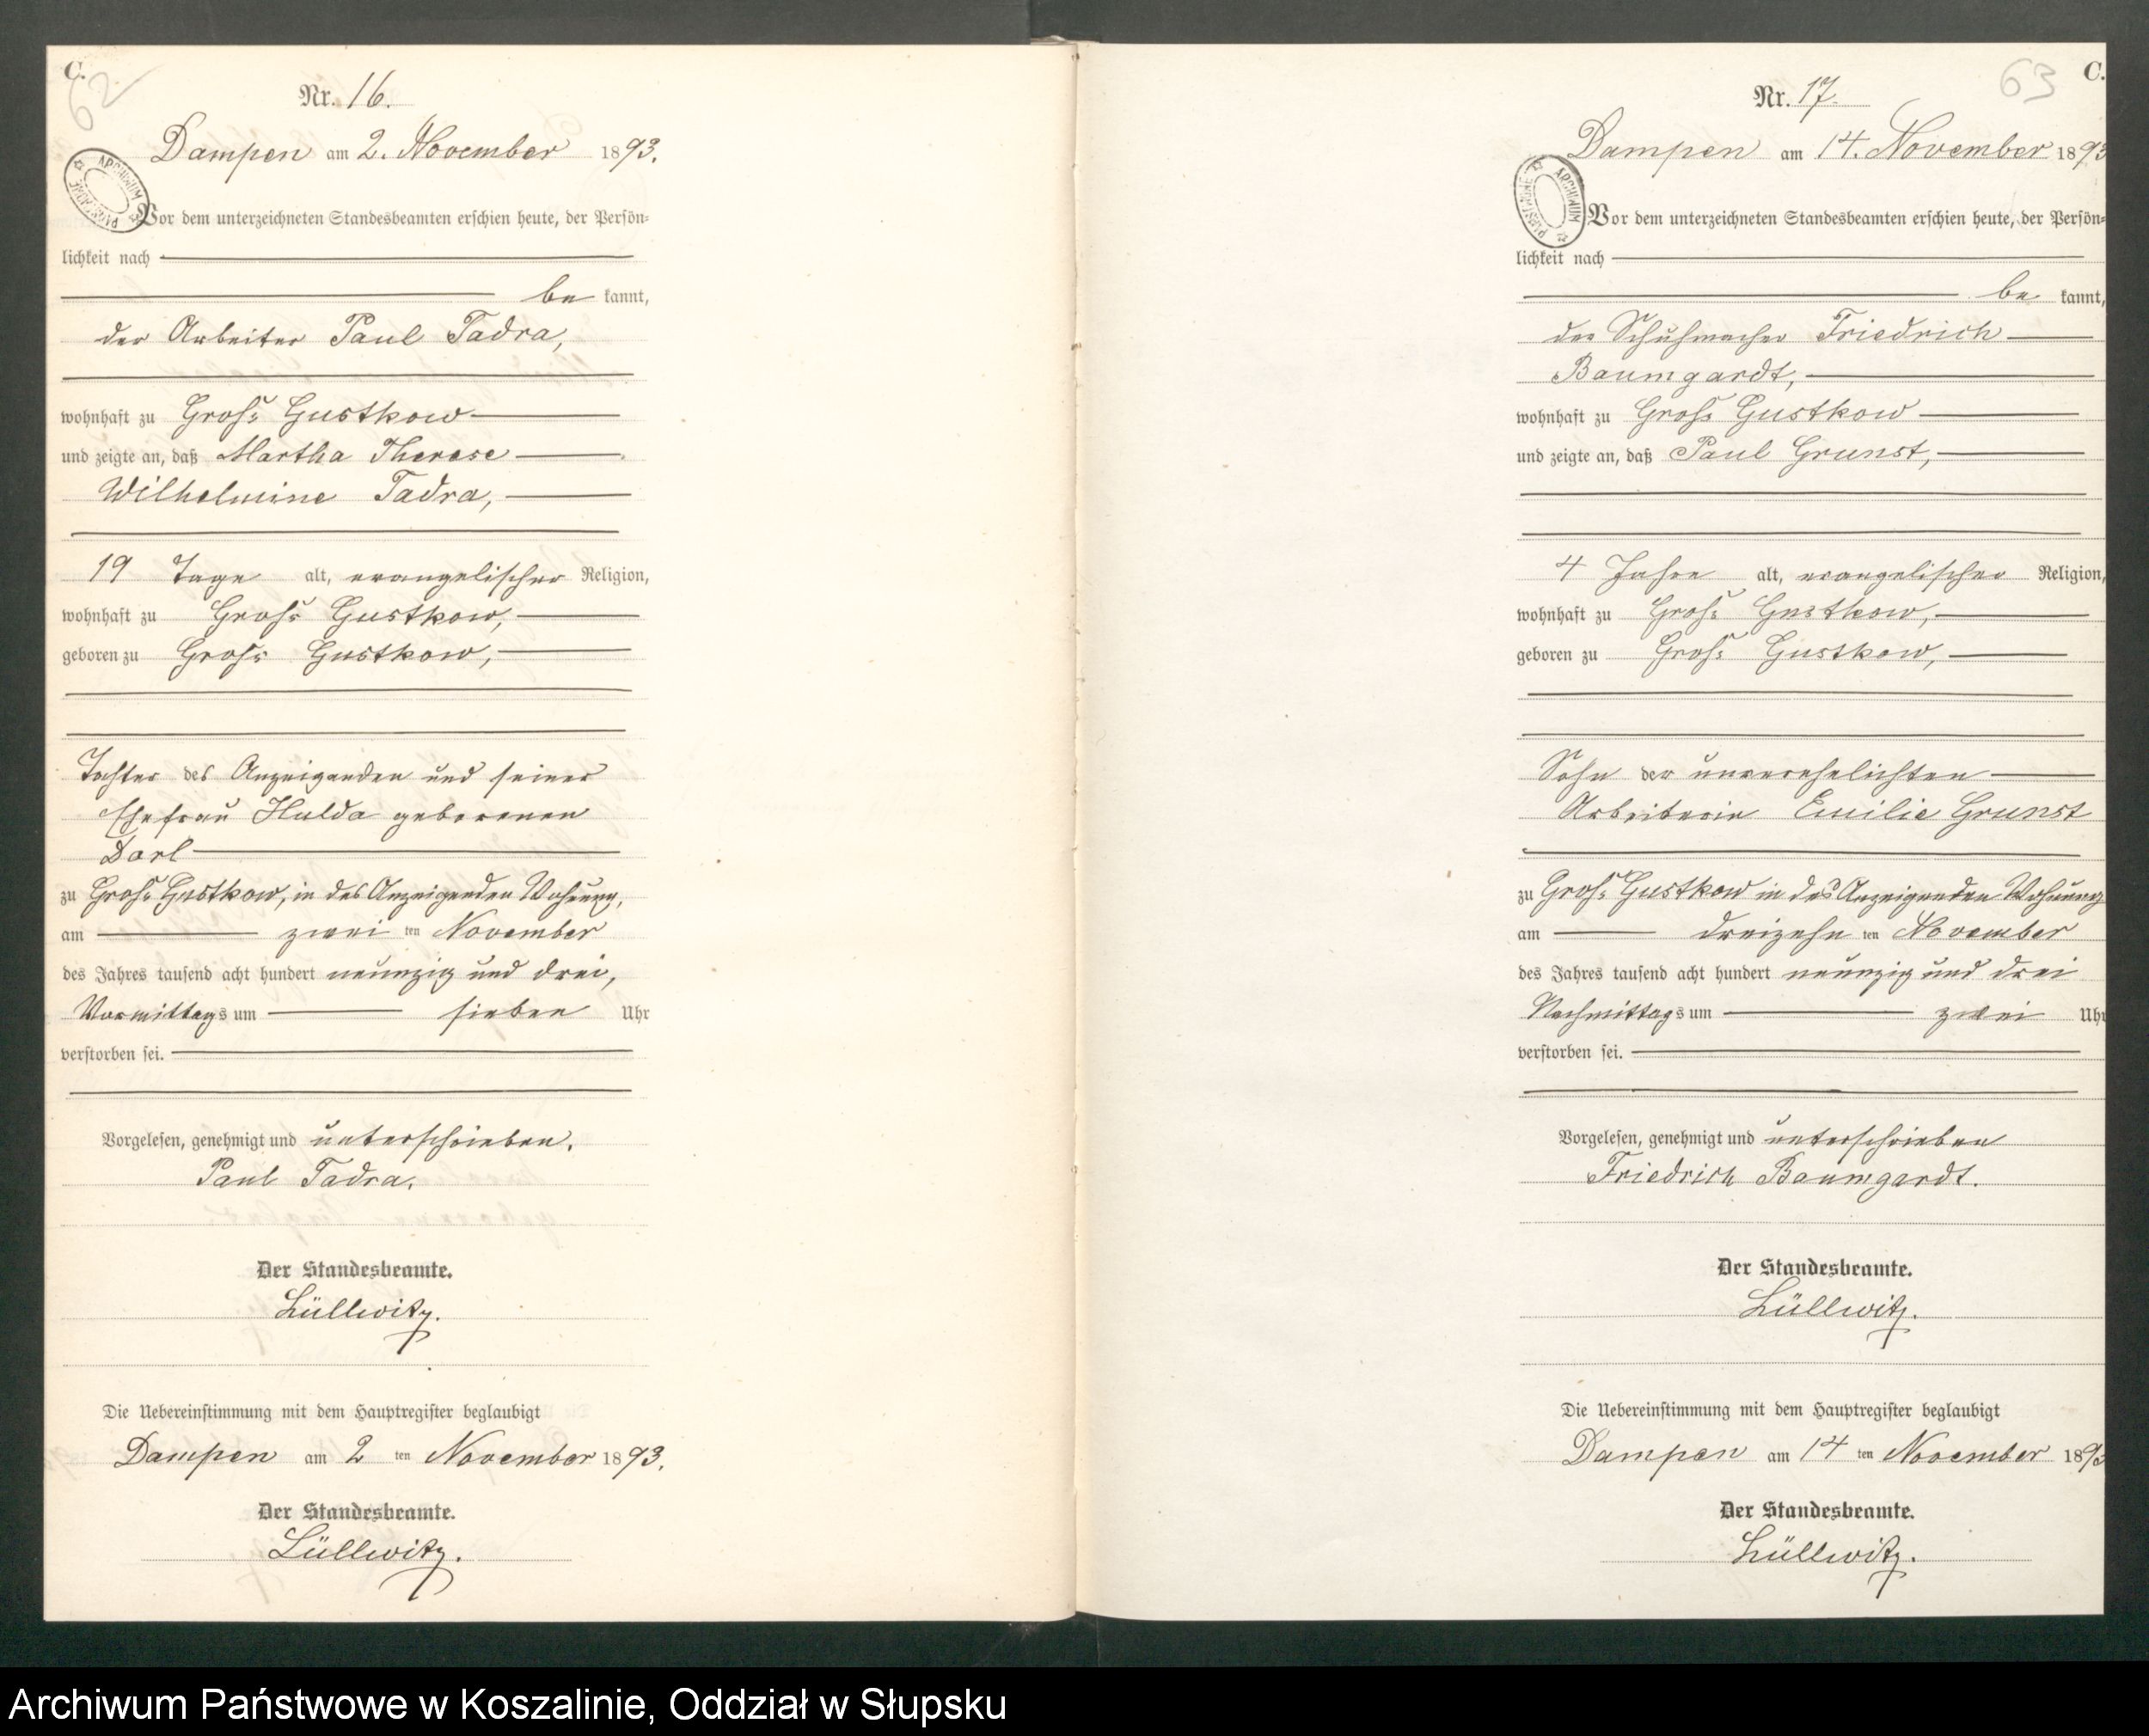 C.
62
Nr. 16.
Dampen am 2. November 1893.
ARCHIWUM PAŃSTWOWE
Vor dem unterzeichneten Standesbeamten erschien heute, der Persön-
lichkeit nach
be kannt,
der Arbeiter Paul Tadra,
wohnhaft zu Groß Gustkow
und zeigte an, daß Martha Therese
Wilhelmine Tadra,
19 Tage alt, evangelischer Religion,
wohnhaft zu Groß Gustkow,
geboren zu Groß Gustkow,
Tochter des Anzeigenden und seiner
Ehefrau Hulda geborenen
Darl
zu Groß Gustkow, in des Anzeigenden Wohnung,
am zwei ten November
des Jahres tausend acht hundert neunzig und drei,
Vormittags um sieben Uhr
verstorben sei.
Vorgelesen, genehmigt und unterschrieben.
Paul Tadra.
Der Standesbeamte.
Lüllwitz.
Die Uebereinstimmung mit dem Hauptregister beglaubigt
Dampen am 2 ten November 1893.
Der Standesbeamte.
Lüllwitz.
63
C.
Nr. 17.
Dampen am 14. November 1893
ARCHIWUM PAŃSTWOWE
Vor dem unterzeichneten Standesbeamten erschien heute, der Persön-
lichkeit nach
be kannt,
der Schuhmacher Friedrich
Baumgardt,
wohnhaft zu Groß Gustkow
und zeigte an, daß Paul Grunst,
4 Jahre alt, evangelischer Religion,
wohnhaft zu Groß Gustkow,
geboren zu Groß Gustkow,
Sohn der unverehelichten
Arbeiterin Emilie Grunst
zu Groß Gustkow in des Anzeigenden Wohnung
am dreizehn ten November
des Jahres tausend acht hundert neunzig und drei
Nachmittags um zwei Uhr
verstorben sei.
Vorgelesen, genehmigt und unterschrieben
Friedrich Baumgardt.
Der Standesbeamte.
Lüllwitz.
Die Uebereinstimmung mit dem Hauptregister beglaubigt
Dampen am 14 ten November 1893
Der Standesbeamte.
Lüllwitz.
Archiwum Państwowe w Koszalinie, Oddział w Słupsku